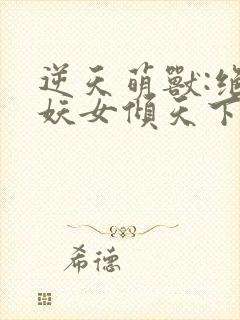 逆天萌獸:絕
妖女傾天下
希德